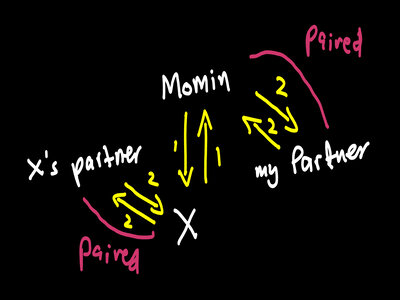 Paired
Momin
2
2
1
1
my Partner
X's partner
2
2
X
Paired